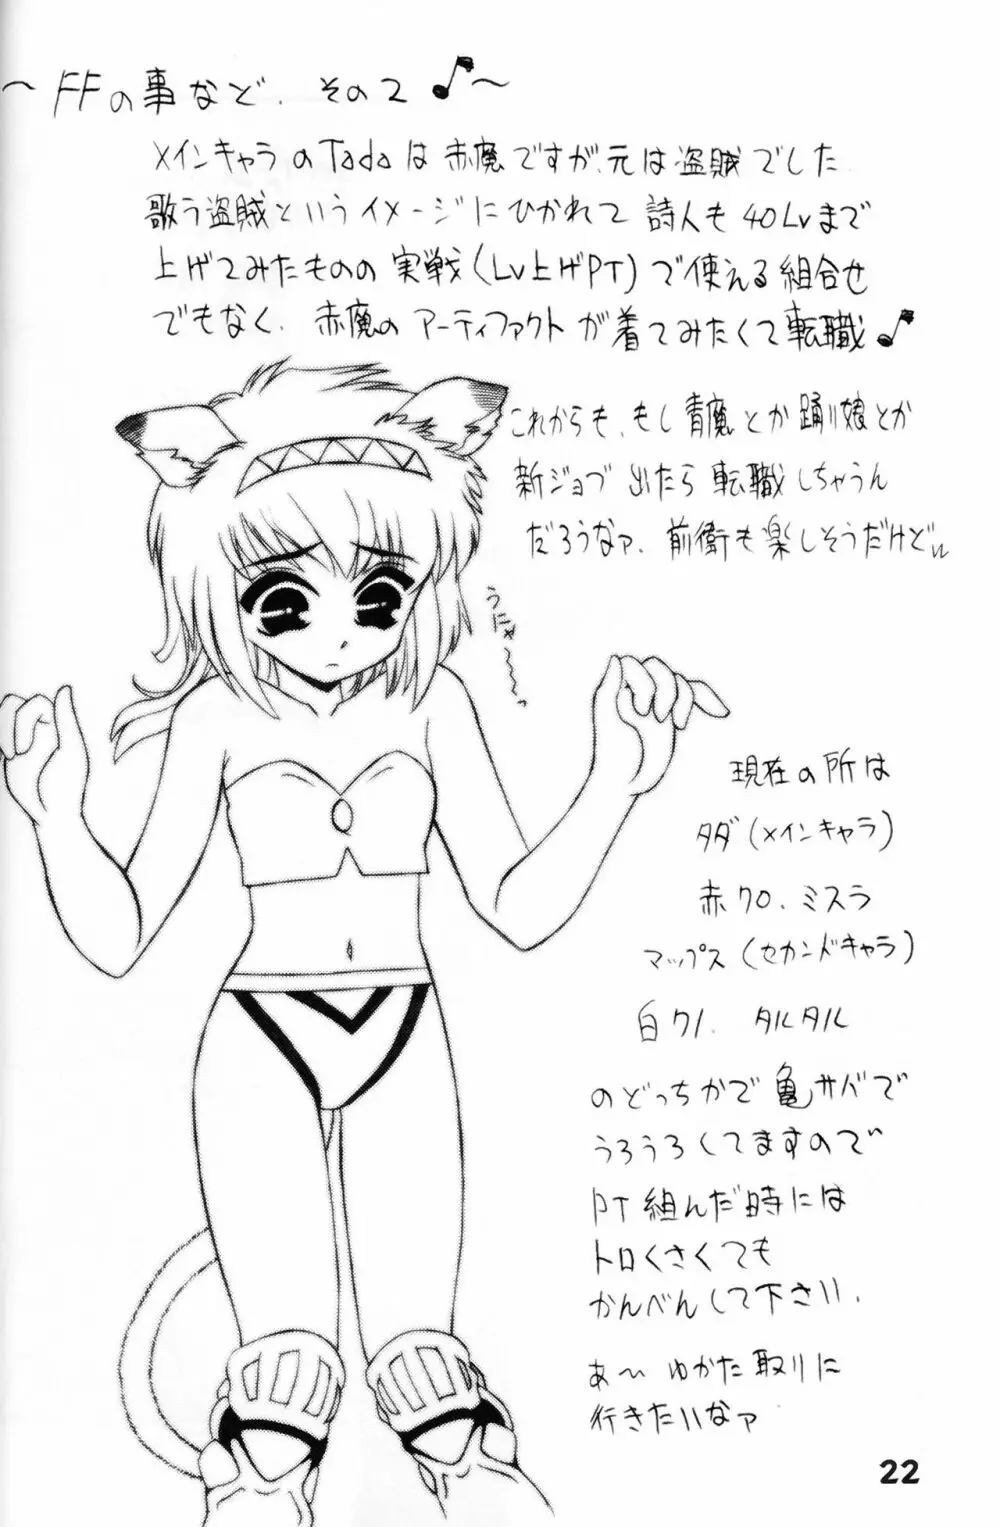 ～FFの事など．その2♪～
メインキャラのTadaは赤魔ですが、元は盗賊でした
歌う盗賊というイメージにひかれて 詩人も40Lvまで
上げてみたものの 実戦(Lv上げPT)で使える組合せ
でもなく、赤魔のアーティファクトが着てみたくて転職♪
これからも、もし青魔とか踊り娘とか
新ジョブ 出たら 転職しちゃうん
だろうなァ、前衛も楽しそうだけどぃ
うにゃ～～～っ
現在の所は
タダ(メインキャラ)
赤クロ、ミスラ
マップス(セカンドキャラ)
白クノ、タルタル
のどっちかで亀サバで
うろうろしてますので
PT組んだ時には
トロくさくても
かんべんして下さい．
あ～ ゆかた取りに
行きたいなァ
22